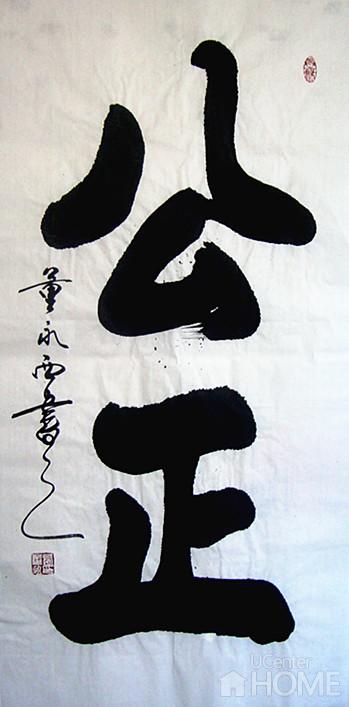 公正
董永西書
UCenter
HOME